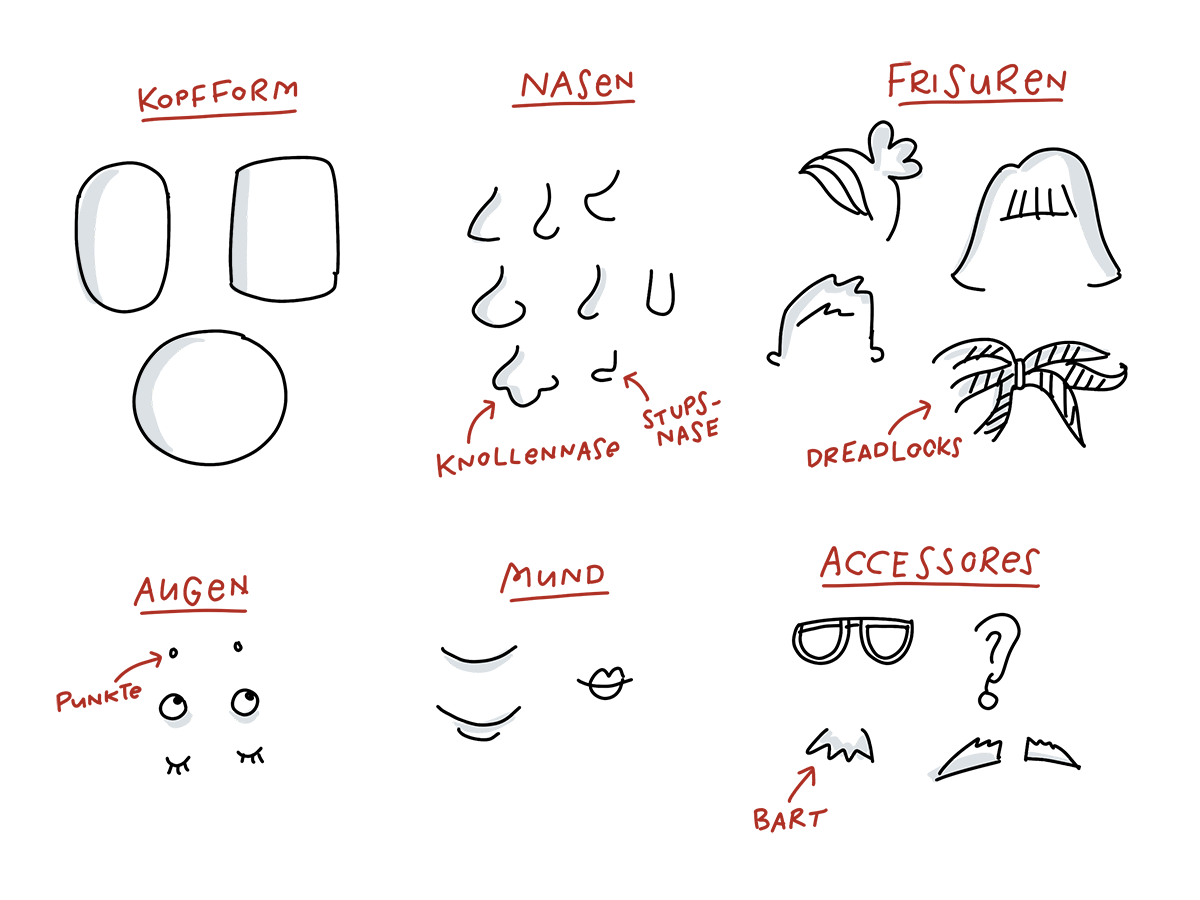 KOPFFORM
NASEN
FRISUREN
KNOLLENNASE
STUPS-
NASE
DREADLOCKS
AUGEN
PUNKTE
MUND
ACCESSORES
BART